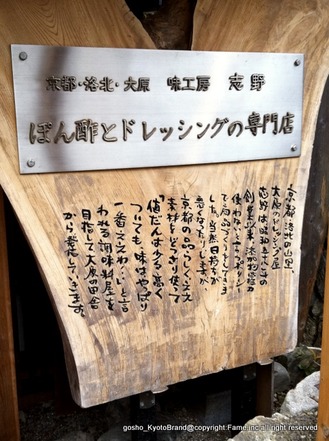 京都・洛北・大原 味工房 志野
ぽん酢とドレッシングの専門店
京都 洛北の山里
大原のドレッシング屋
創業以来、
使わない
当然日持ちが
悪くなったりしますが
京都の品らしく、ええ
素材をどっさり使って
「値だんは少々高く
ついても、味はやっぱり
一番ええわ」と言
われる調味料屋を
目指して大原の田舎
から発信していきます。
gosho_KyotoBrand@copyright:Fame,Inc all right reserved